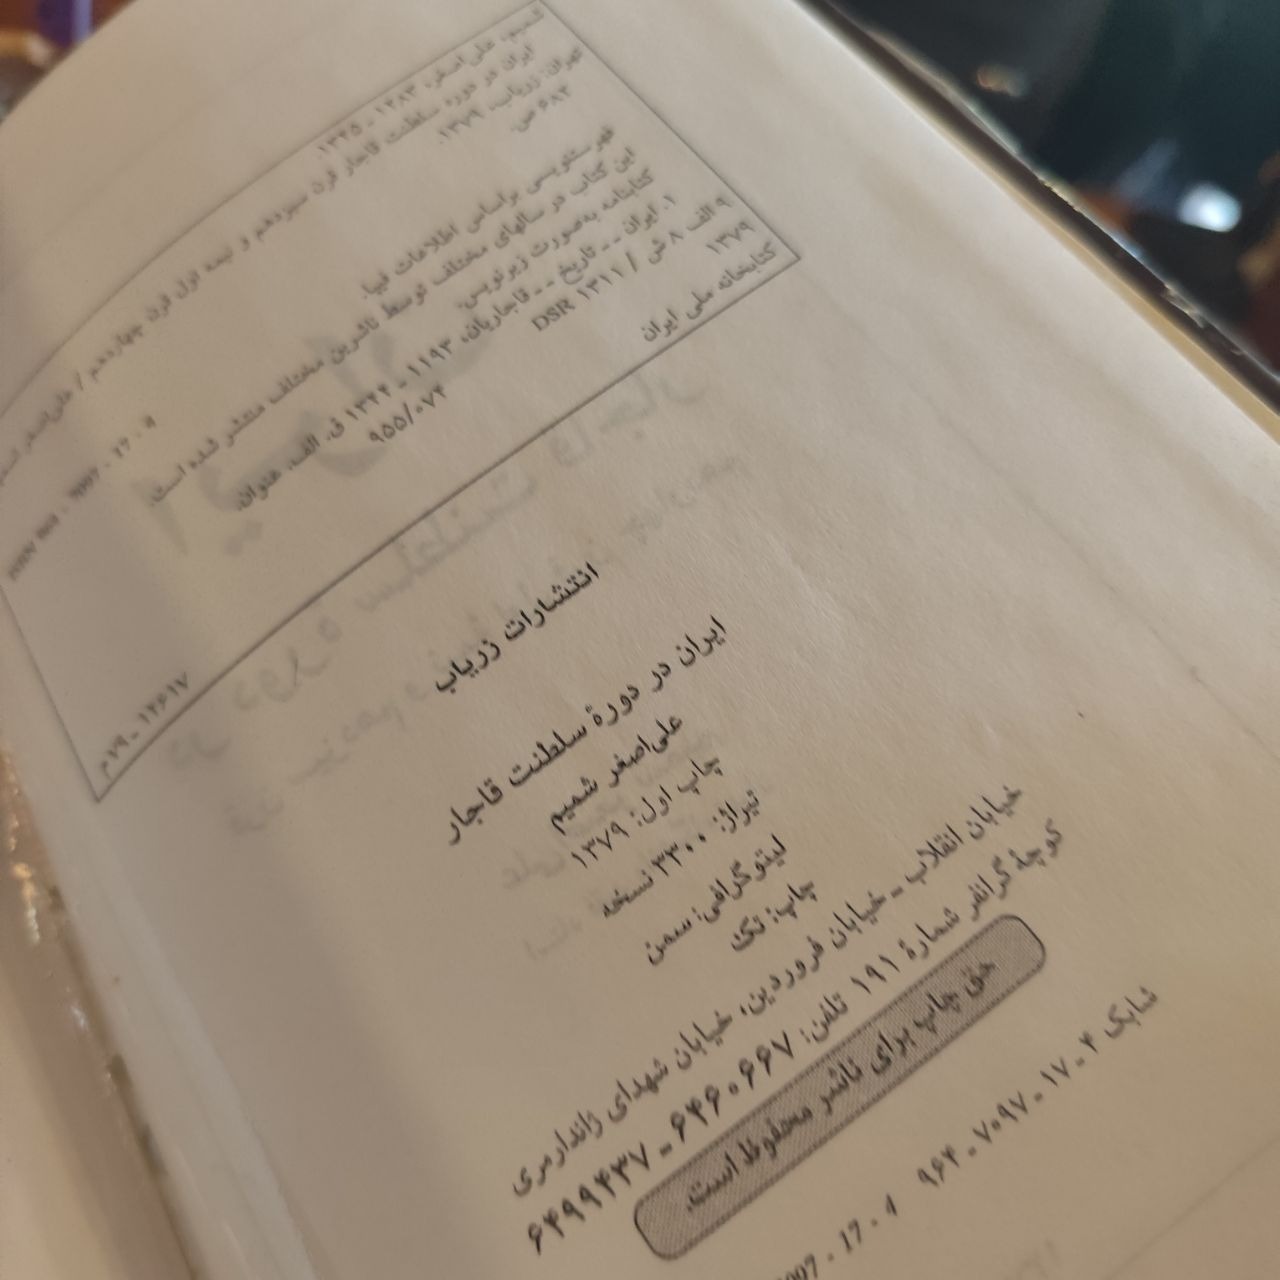 شمیم، علی اصغر، ۱۲۸۳ - ۱۳۴۵.
ایران در دوره سلطنت قاجار قرن سیزدهم و نیمه اول قرن چهاردهم / علی‌اصغر
تهران: زریاب، ۱۳۷۹.
۶۸۲ ص.
فهرستنویسی براساس اطلاعات فیپا.
این کتاب در سالهای مختلف توسط ناشرین مختلف منتشر شده است.
کتابنامه به‌صورت زیرنویس.
۱. ایران -- تاریخ -- قاجاریان، ۱۱۹۳ - ۱۳۴۴ ق. الف. عنوان.
۹ الف ۸ ش / DSR ۱۳۱۱
۹۵۵/۰۷۴
۱۳۷۹
کتابخانه ملی ایران
۱۲۶۱۷ - ۷۹م
انتشارات زریاب
ایران در دورهٔ سلطنت قاجار
علی‌اصغر شمیم
چاپ اول: ۱۳۷۹
تیراژ: ۳۳۰۰ نسخه
لیتوگرافی: سمن
چاپ: تک
خیابان انقلاب - خیابان فروردین، خیابان شهدای ژاندارمری
کوچهٔ گرانفر شمارهٔ ۱۹۱ تلفن: ۶۴۶۰۶۶۷ - ۶۴۹۹۴۳۷
حق چاپ برای ناشر محفوظ است.
شابک ۴ - ۱۷ - ۷۰۹۷ - ۹۶۴